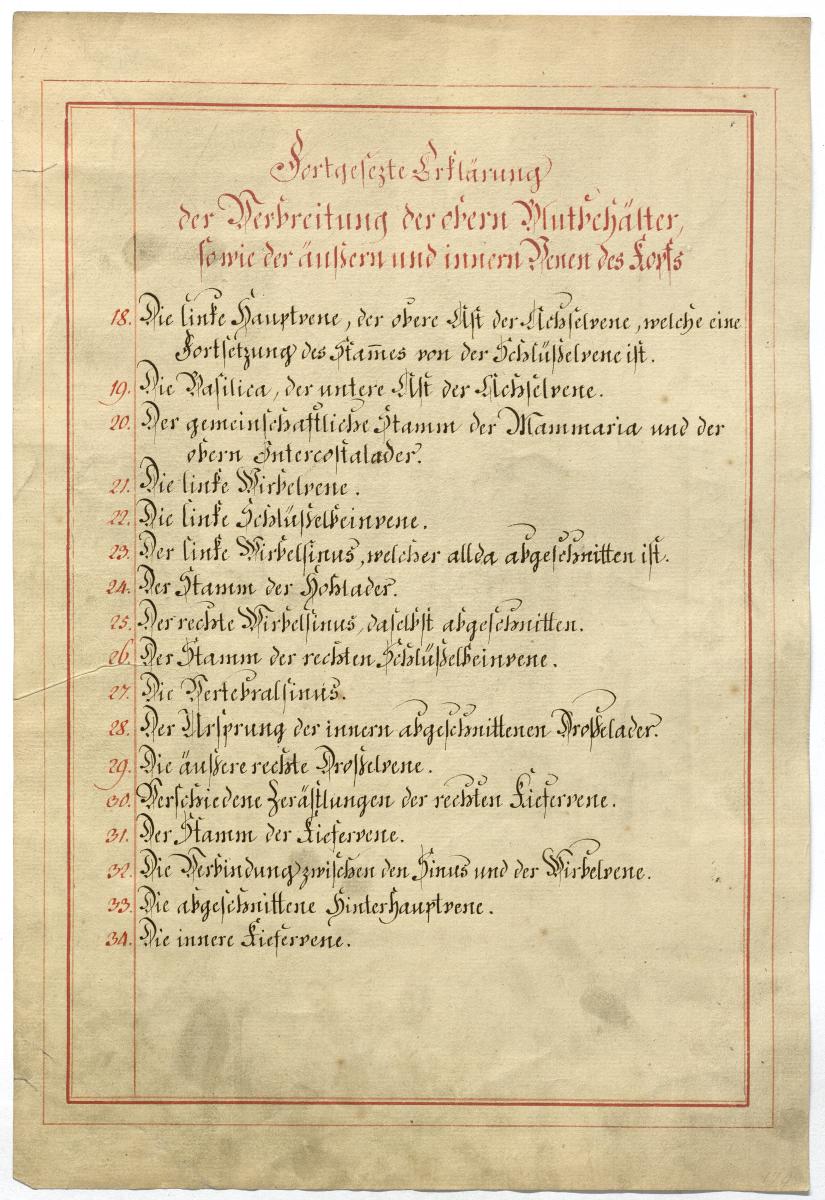 Fortgesezte Erklärung
der Verbreitung der obern Blutbehälter,
so wie der äußern und innern Venen des Kopfs
18. Die linke Hauptvene, der obere Ast der Achselvene, welche eine
Fortsetzung des Stam̅es von der Schlüßelvene ist.
19. Die Basilica, der untere Ast der Achselvene.
20. Der gemeinschaftliche Stamm der Mammaria und der
obern Intercostalader.
21. Die linke Wirbelvene.
22. Die linke Schlüßelbeinvene.
23. Der linke Wirbelsinus, welcher allda abgeschnitten ist.
24. Der Stamm der Hohlader.
25. Der rechte Wirbelsinus, daselbst abgeschnitten.
26. Der Stamm der rechten Schlüßelbeinvene.
27. Die Vertebralsinus.
28. Der Ursprung der innern abgeschnittenen Droßelader.
29. Die äußere rechte Droßelvene.
30. Verschiedene Zerästlungen der rechten Kiefervene.
31. Der Stamm der Kiefervene.
32. Die Verbindung zwischen den Sinus und der Wirbelvene.
33. Die abgeschnittene Hinterhauptvene.
34. Die innere Kiefervene.